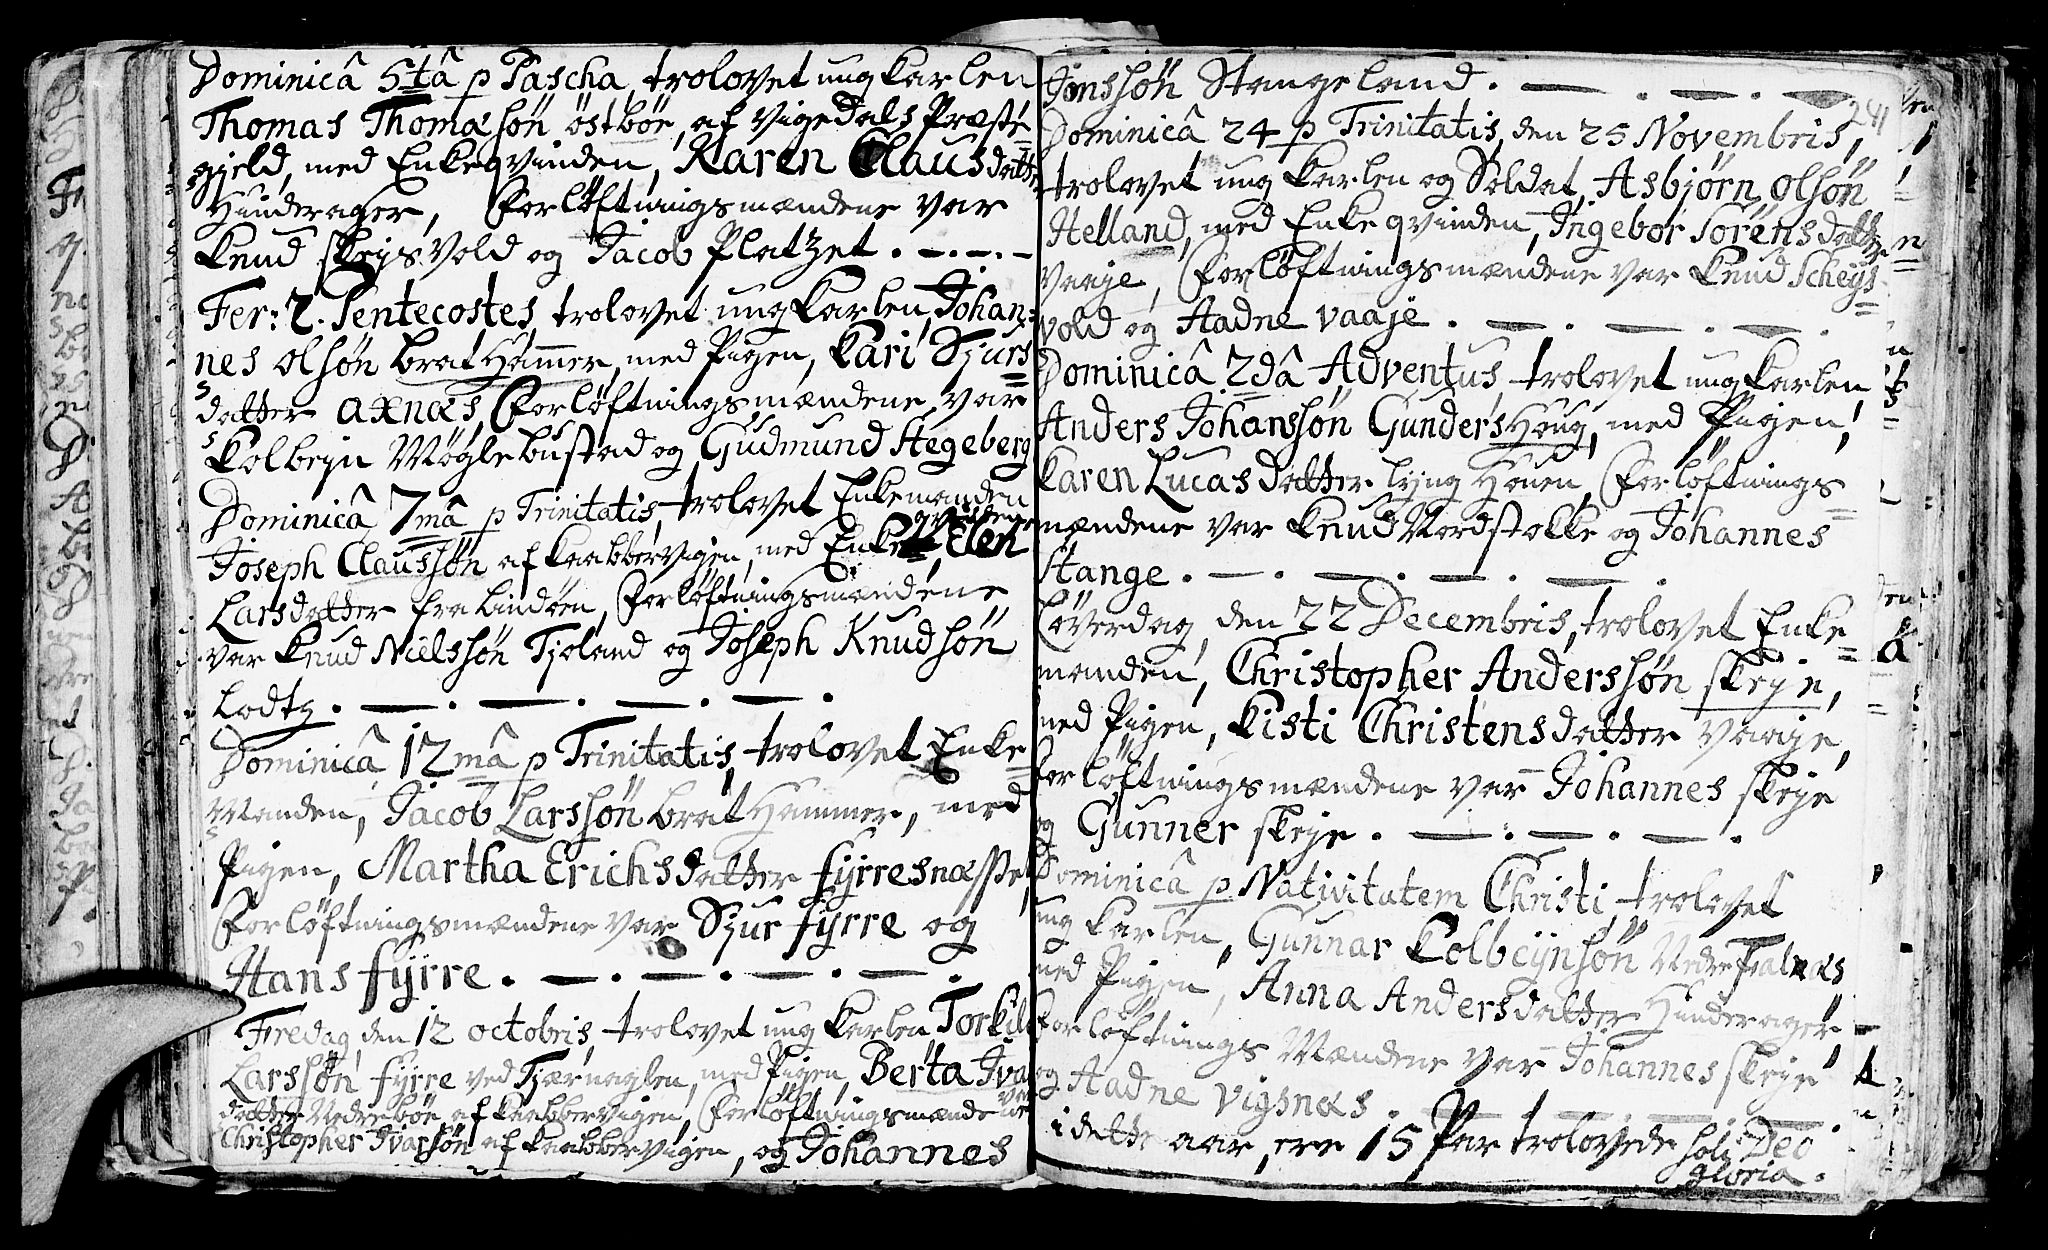 Dominicâ 5tâ p Pascha, trolovet ungkarlen
Thomas Thomæsøn östböe, af Vigedals Præste=
gjeld, med Enkeqvinden, Karen Clausdatter
Hunderager, Forløftningsmændene var
Knud Skejsvold og Jacob Platzet.
Fer: 2. Pentecostes, trolovet ungkarlen, Johan=
nes olsøn bratHammer, med Pigen, Kari Sjurs=
datter axnæs, Forløftningsmændene var
Kolbejn Møglebustad og Gudmund Hegeberg
Dominicâ 7mâ p Trinitatis, trolovet Enkemanden
Joseph Claussøn af Kaabbervigen, med Enkeqvinden, Elen
Larsdatter fra Lindøen, Forløftningsmændene
var Knud Nielssøn Tjoland og Joseph Knudsøn
Lodtz.
Dominicâ 12mâ p Trinitatis, trolovet Enke=
Manden, Jacob Larssøn bratHammer, med
Pigen, Martha Erichsdatter fÿrresnæsset,
Forløftningsmændene var Sjur fÿrre og
Hans fÿrre.
Fredag, den 12 octobris, trolovet ungkarlen, Torkild
Larssøn fÿrre ved Tjærnaglen, med Pigen, Berta Ivars
datter Nedrebøe af Kaabbervigen, Forløftningsmændene var
Christopher Ivarsøn af Kaabbervigen, og Johannes
Jonssøn Stangeland. 241
Dominicâ 24 p Trinitatis, den 25 Novembris,
trolovet ungkarlen og Soldat, Asbjørn olsøn
Helland, med Enkeqvinden, Ingebor Sørensdatter
Vaaje, Forløftningsmændene var Knud Schejs=
vold og Aadne vaaje.
Dominicâ 2dâ Adventus trolovet ungkarlen
Anders Johanssøn GundersHoug, med Pigen,
Karen Lucasdatter lyngHouen, Forløftnings=
mændene var Knud Nordstokke og Johannes
Stange.
Løverdag, den 22 Decembris, trolovet Enke=
manden, Christopher Anderssøn Skeje,
med Pigen, Kisti Christensdatter Vaaje,
Forløftningsmændene var Johannes Skeje
og Gunner Skeje.
Dominicâ p Nativitatem Christi, trolovet
ungkarlen, Gunnar Kolbejnsøn Nedre Fralnæs
med Pigen, Anna Andersdatter Hunderager,
Forløftnings Mændene var Johannes Skeje
og Aadne Vigsnæs.
i dette aar, ere 15 Par trolovede soli Deo
gloria.